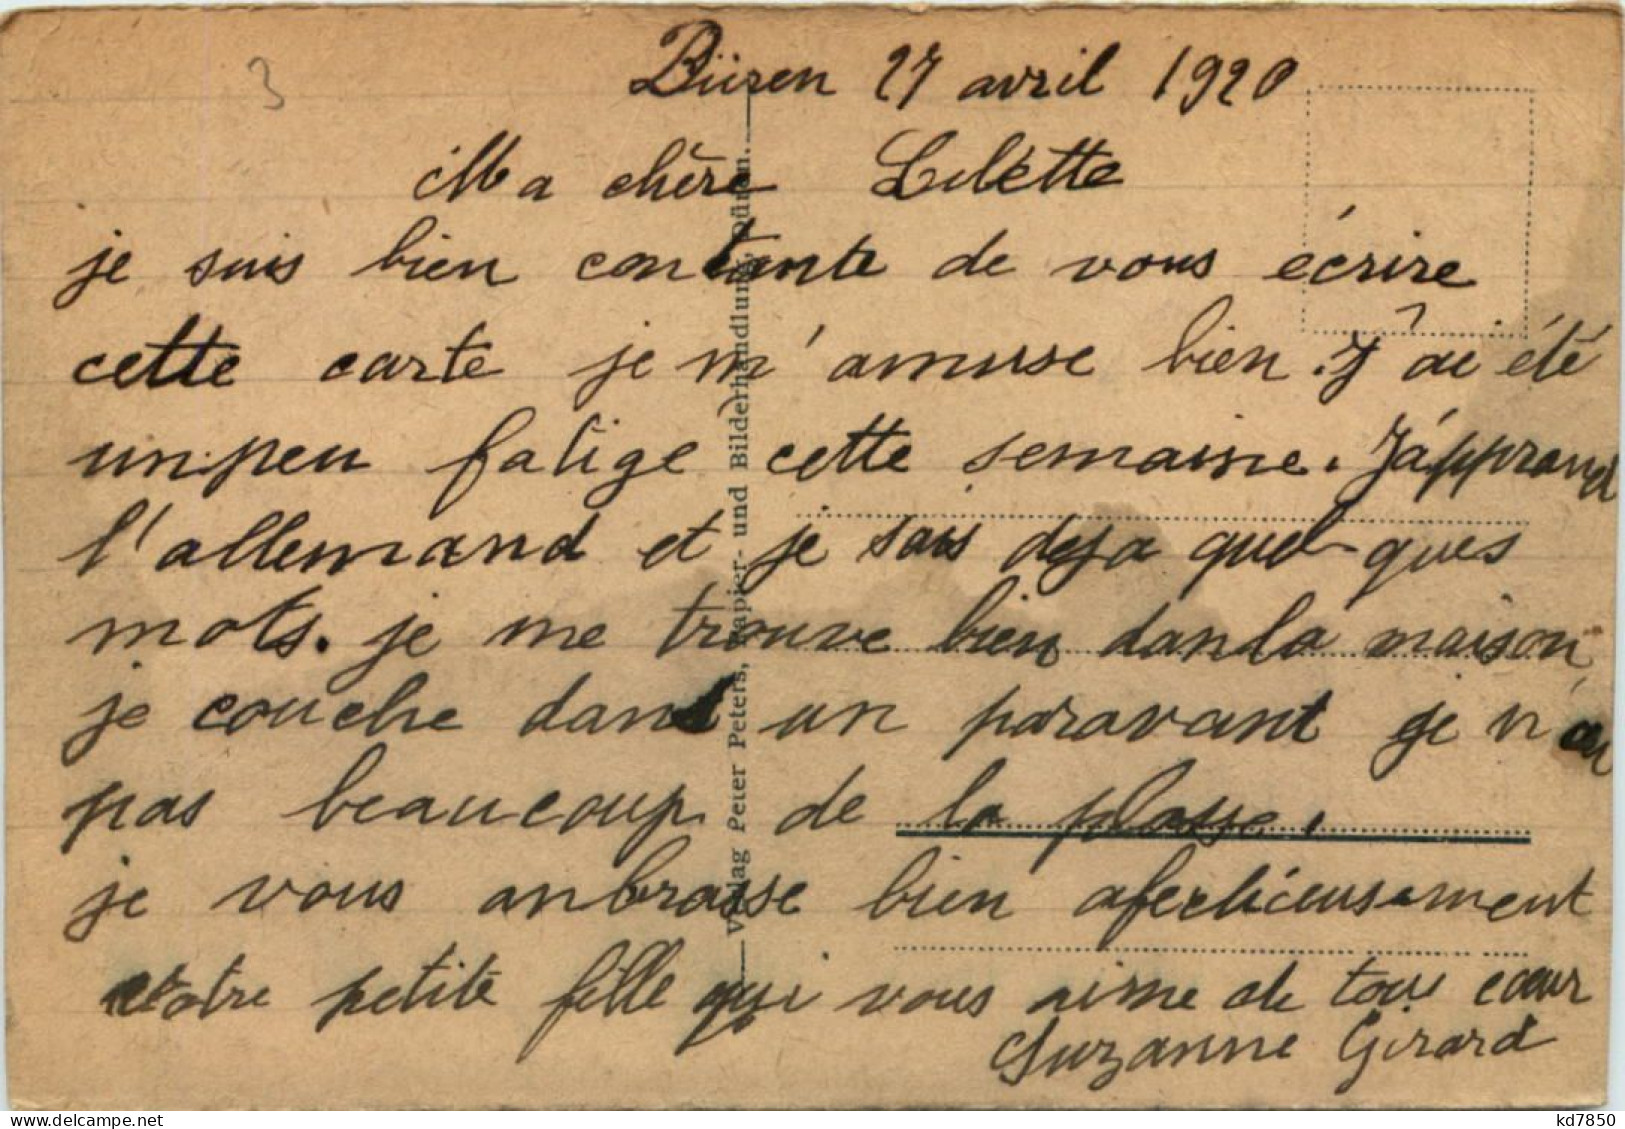 3
Düren 27 avril 1920
Ma chère Lilétte
je suis bien contante de vous écrire
cette carte je m'amuse bien. J'ai été
un peu fatige cette semaine. J'apprand
l'allemand et je sais deja quel-ques
mots. je me trouve bien dan la maison,
je couche dans un paravant je n'ai
pas beaucoup de la plasse.
je vous anbrasse bien afectieusement
votre petite fille qui vous aime de tous cœur
Suzanne Girard
Verlag Peter Peters, Papier- und Bilderhandlung, Düren.
kd7850